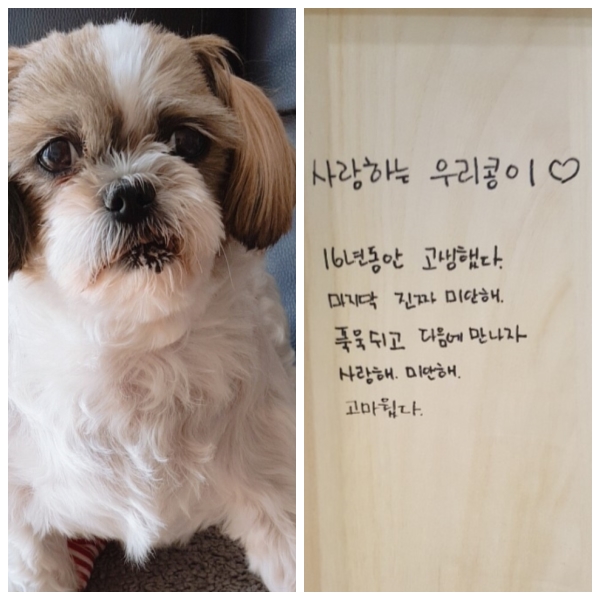 사랑하는 우리콩이 ♡
16년동안 고생했다.
마지막 진짜 미안해.
푹욱쉬고 다음에 만나자
사랑해. 미안해.
고마웠다.